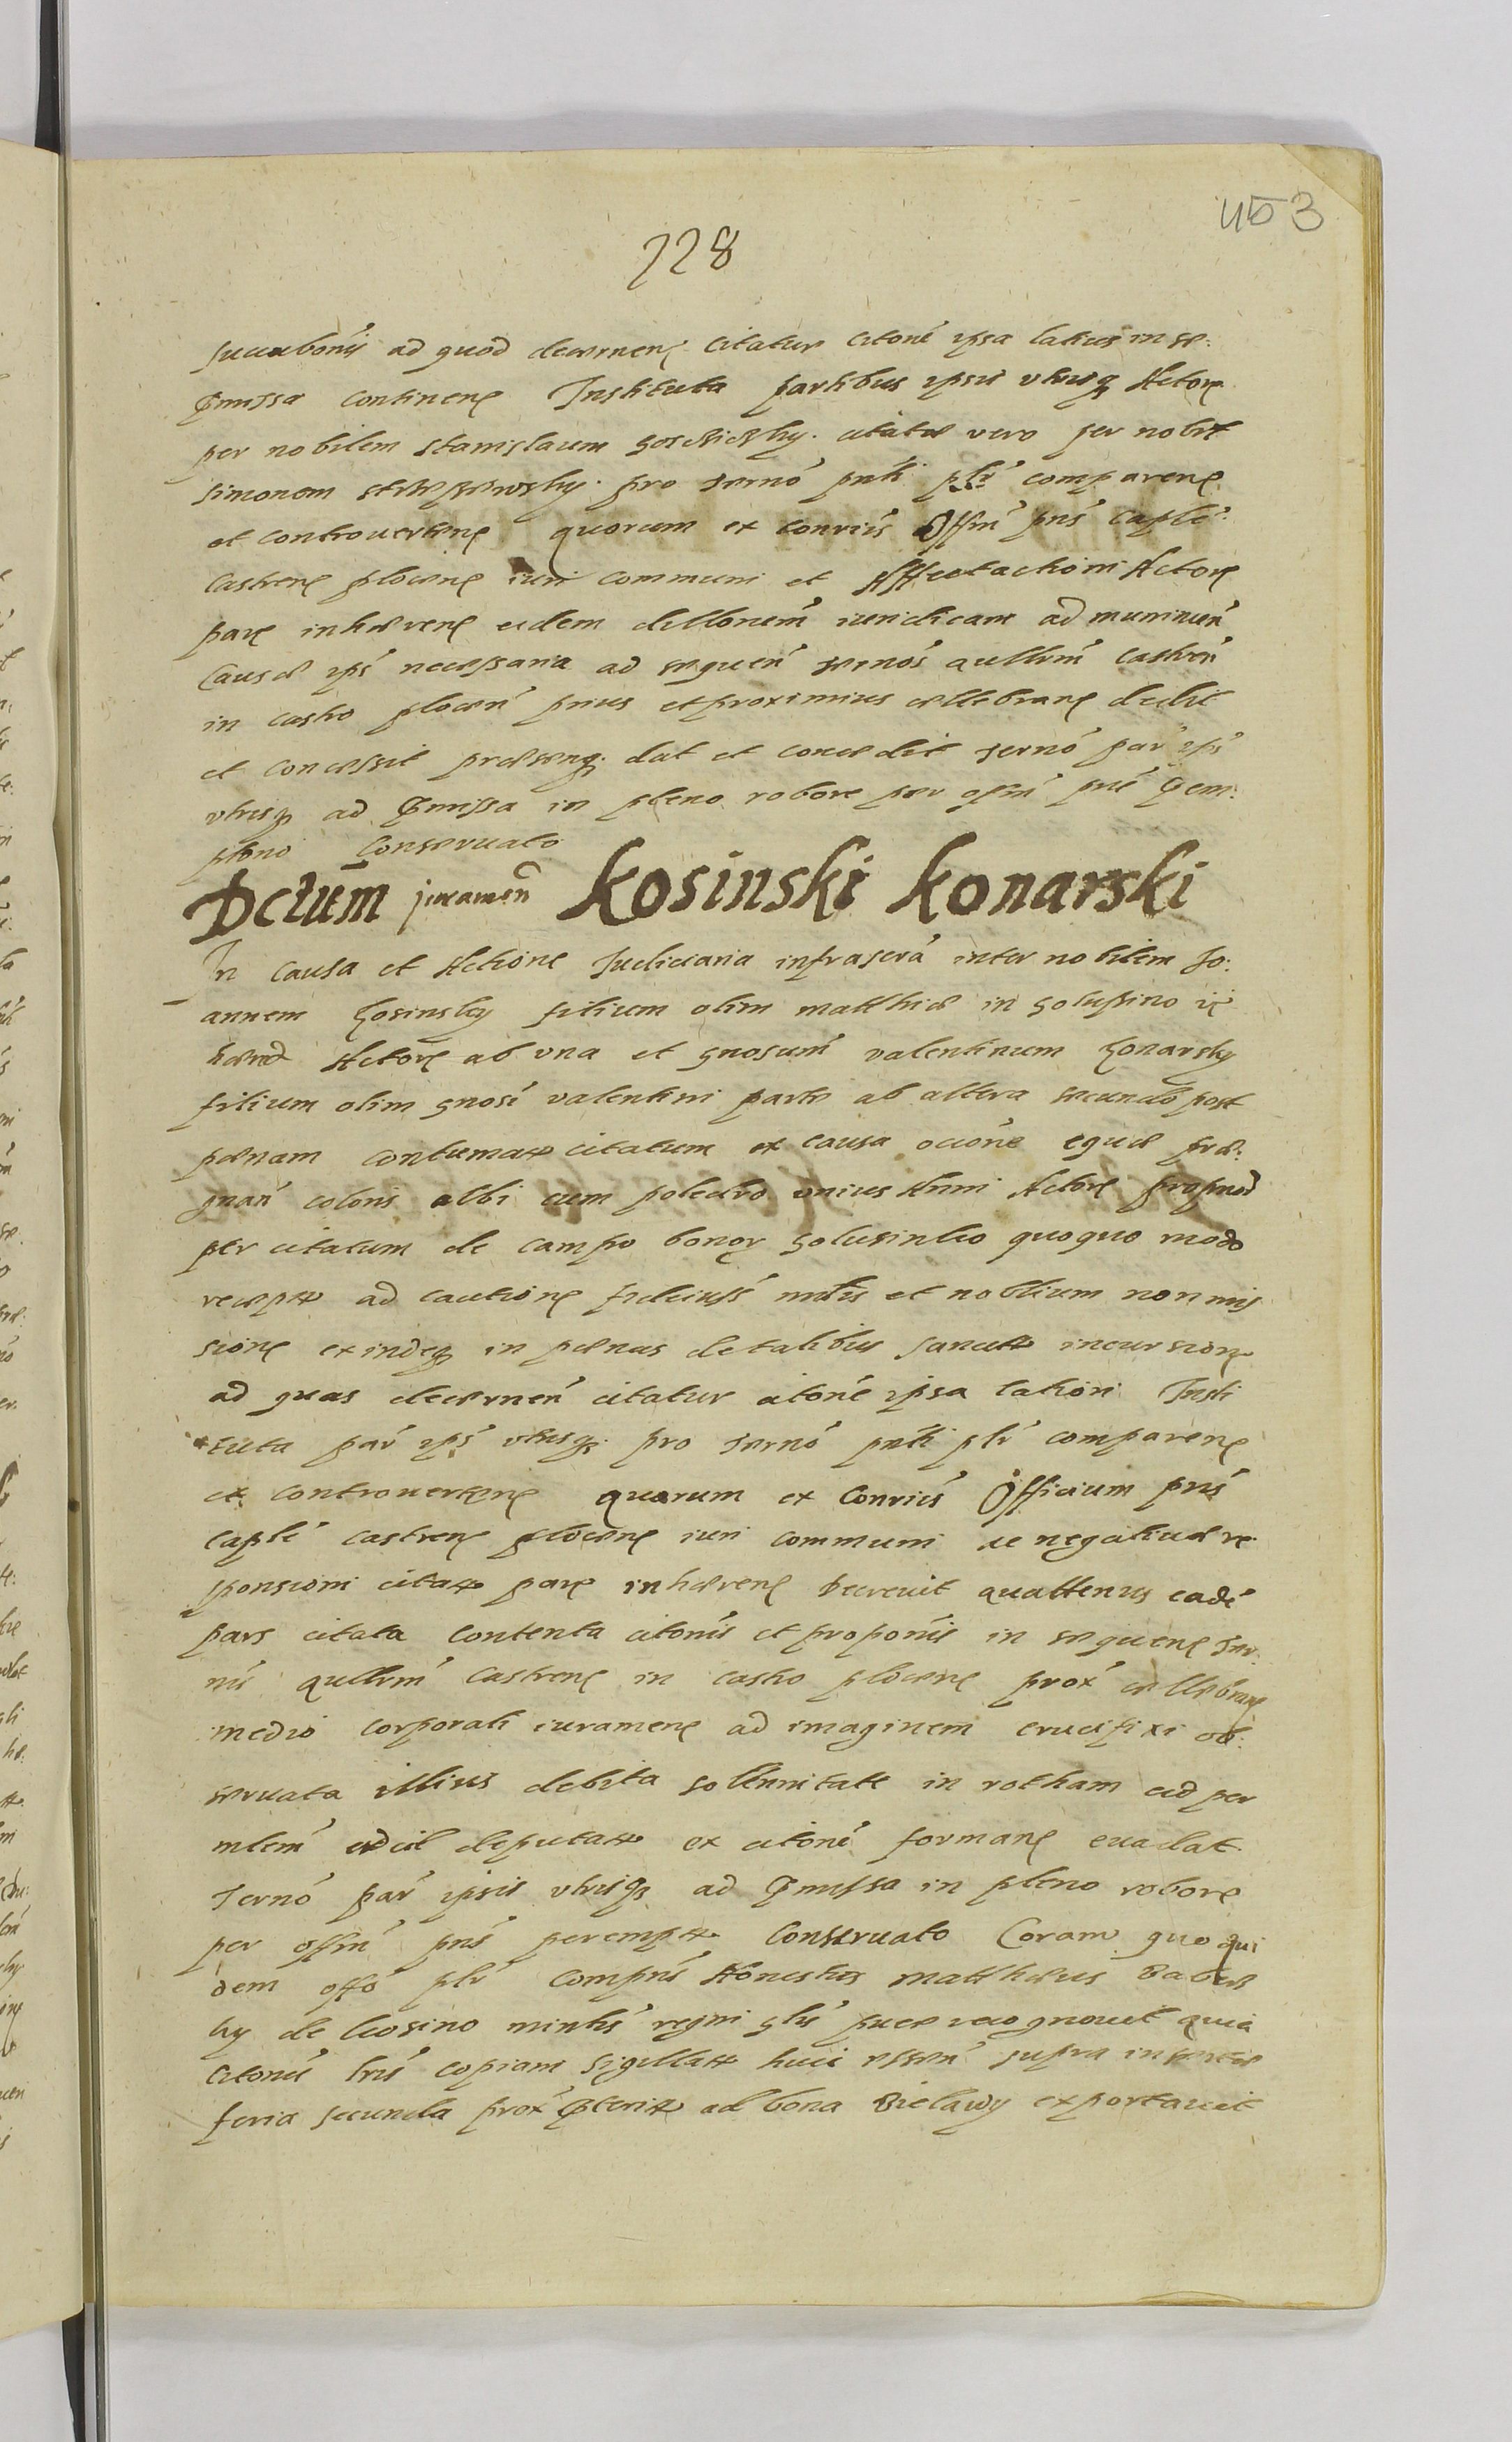 453
228
succubonis ad quod decernen citatur citone ipsa latius in se:
pmissa continen Instituta partibus ipsis utrisq Actorea
per nobilem Stanislaum citata vero per nobilem
Simonem pro termo pnti plr comparen
et controverten quorum ex contriis Offm pns Caple
Castren plocen iuri communi et Affectactioni Actorea
par inhæren eidem dellonem iuridicam ad munimen
Causæ ips necessaria ad sequen termos qullrm castren
in castro plocen prius et proximius cellebran dedit
et concessit præsenq. dat et concedit termo par ips
utrisq ad pmissa in pleno robore per offm pns pem:
ptono Conservato
Dctum juramen Kosinski Konarski
In causa et Actione Judiciaria infrascra inter nobilem Jo:
annem Kosinsky filium olim Matthiæ in Golussino
hæred Actorem ab una et gnosum Valentinum Konarsky
filium olim gnosi Valentini parte ab altera secundo post
pænam contumaciæ citatum ex causa occione equæ præ:
gnan coloris albi cum poledro unius Anni Actore propriæ
per citatum de campo bonor quoquo modo
receptæ ad cautione fideiuss mltis et noblium non mis
sione exindeq in pænas de talibus sancitas incursione
ad quas decernen citatur citone ipsa lationi Insti
tuta par ips utrisq pro termo pnti plr comparen
et controverten quorum ex Contriis Officium pns
caple castren plocen iuri communi ac negativæ re
sponsioni citatæ par inhæren Decrevit quattenus eade
pars citata contenta citonis et proponis in sequen ter
nis qullrm Castren in castro plocen prox cellebran
medio corporali iuramen ad imaginem crucifixi ob:
servata illius debita sollennitate in rotham ad per
mlem ad id deputatæ ex citone forman evadat
Termo par ipsis utrisq ad pmissa in pleno robore
per offm pns perempte Conservato Coram quo qui
dem offo plr Comprns Honestus Matthæus
ky de minlis regni glis puce recognovit quia
citonis lris copiam sigillatæ huic essen supra insertæ
feria secunda prox pteritæ ad bona Bielawy exportavit